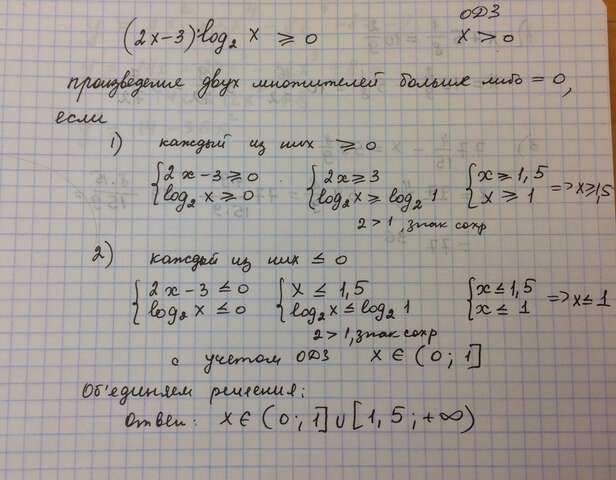 ОДЗ
(2x-3)·log₂ x ≥ 0    x > 0
произведение двух множителей больше либо = 0,
если
1) каждый из них ≥ 0
{2x-3≥0    {2x≥3    {x≥1,5
{log₂x≥0    {log₂x≥log₂1    {x≥1    =>x≥1,5
2>1, знак сохр
2) каждый из них ≤ 0
{2x-3≤0    {x≤1,5    {x≤1,5
{log₂x≤0    {log₂x≤log₂1    {x≤1    =>x≤1
2>1, знак сохр
с учетом ОДЗ    x∈(0;1]
Об'единяем решения:
Ответ: x∈(0;1]∪[1,5;+∞)